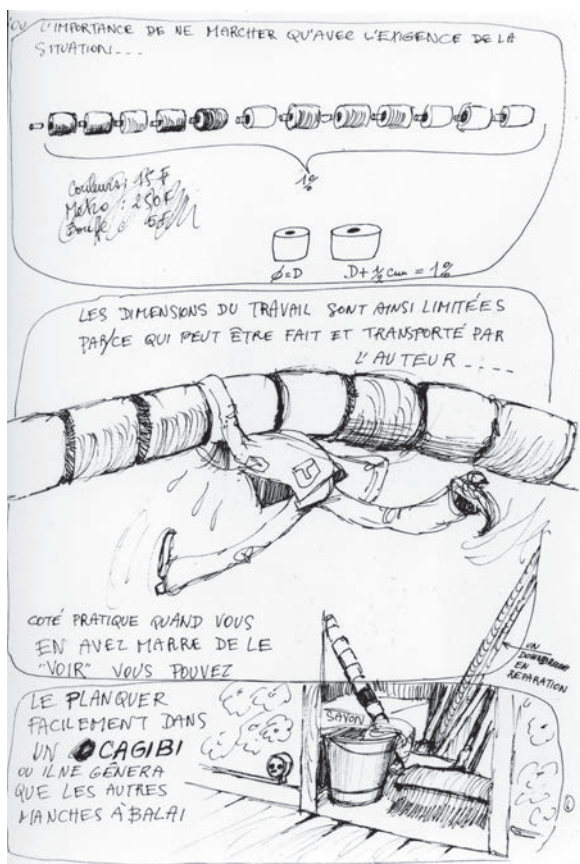 OU L'IMPORTANCE DE NE MARCHER QU'AVEC L'EXIGENCE DE LA
SITUATION...
1%
Couleurs : 15 F
Métro : 250 F
Bouffe 5 F
Ø=D
D+½ cm = 1%
LES DIMENSIONS DU TRAVAIL SONT AINSI LIMITÉES
PAR/CE QUI PEUT ÊTRE FAIT ET TRANSPORTÉ PAR
L'AUTEUR....
COTÉ PRATIQUE QUAND VOUS
EN AVEZ MARRE DE LE
"VOIR" VOUS POUVEZ
UN
EN
REPARATION
LE PLANQUER
FACILEMENT DANS
UN CAGIBI
OU IL NE GÊNERA
QUE LES AUTRES
MANCHES À BALAI
SAVON
©